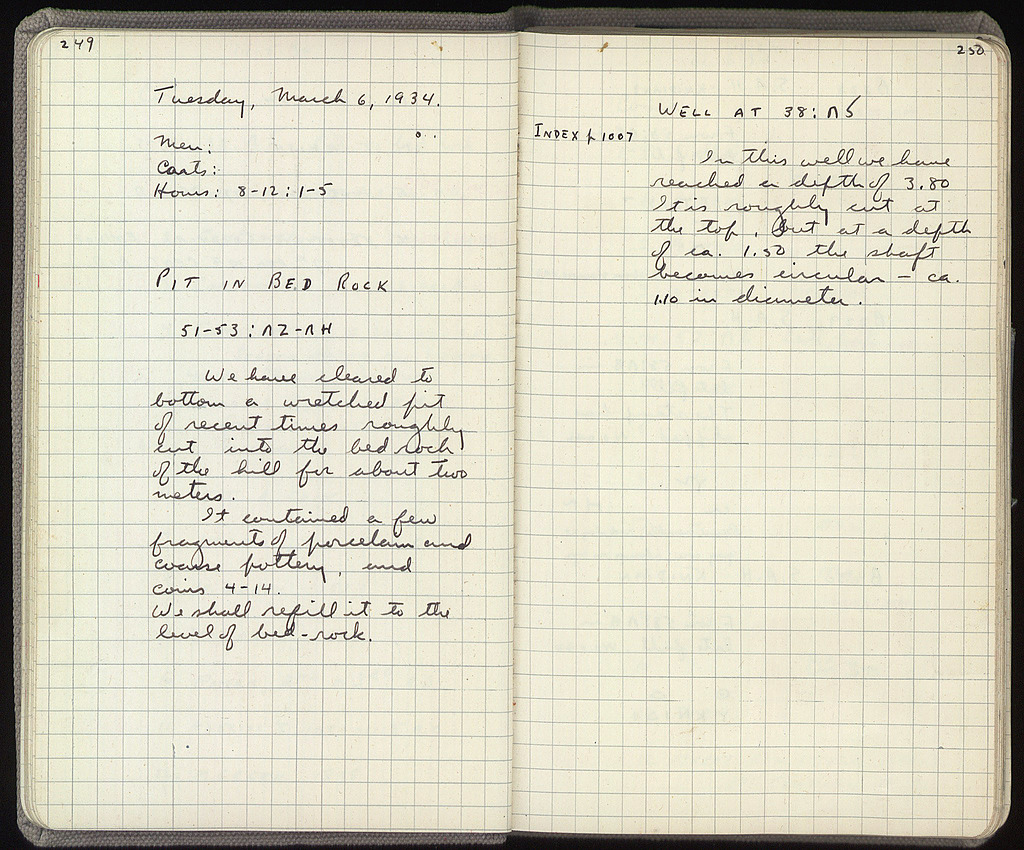 249
Tuesday, March 6, 1934.
Men:
Carts:
Hours: 8-12:1-5
PIT IN BED ROCK
51-53:ΠΖ-ΠΗ
We have cleared to
bottom a wretched pit
of recent times roughly
cut into the bed rock
of the hill for about two
meters.
It contained a few
fragments of porcelain and
coarse pottery, and
coins 4-14.
We shall refill it to the
level of bed-rock.
250
WELL AT 38:ΠS
INDEX p 1007
In this well we have
reached a depth of 3.80
It is roughly cut at
the top, but at a depth
of ca. 1.50 the shaft
becomes circular - ca.
1.10 in diameter.